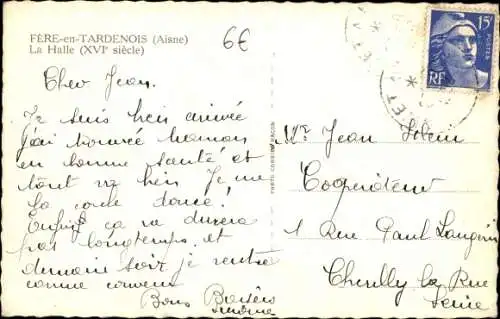 FÈRE-en-TARDENOIS (Aisne)
La Halle (XVIᵉ siècle)
6€
15F
POSTES
RF
Cher Jean.
Je suis bien arrivée
j'ai trouvée maman
en bonne santé et
tout va bien Je me
la coule douce!
Enfin ça va durera
pas longtemps. et
demain soir je rentre
comme convenu
Bons Baisers
Mr Jean
Coopérateur
1 Rue Paul Langevin
Chevilly la Rue
Seine